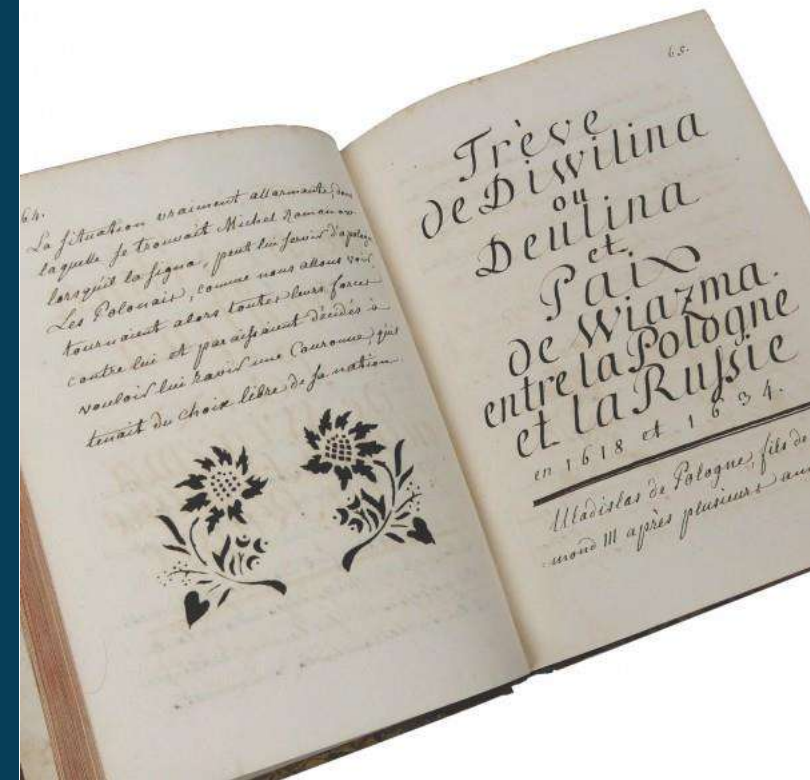 64.
La situation vraiment allarmante, dans
laquelle se trouvait Michel Romanow
lorsqu'il la signa, peut lui servir d'apologie
Les Polonais, comme nous allons voir
tournaient alors toutes leurs forces
contre lui et paraissaient décidés à
vouloir lui ravir une Couronne, qu'il
tenait du choix libre de sa nation.
65.
Trève
de Diwilina
ou
Deulina
et
Paix
de Wiazma.
entre la Pologne
et la Russie
en 1618 et 1634.
Uladislas de Pologne, fils de
mond III après plusieurs